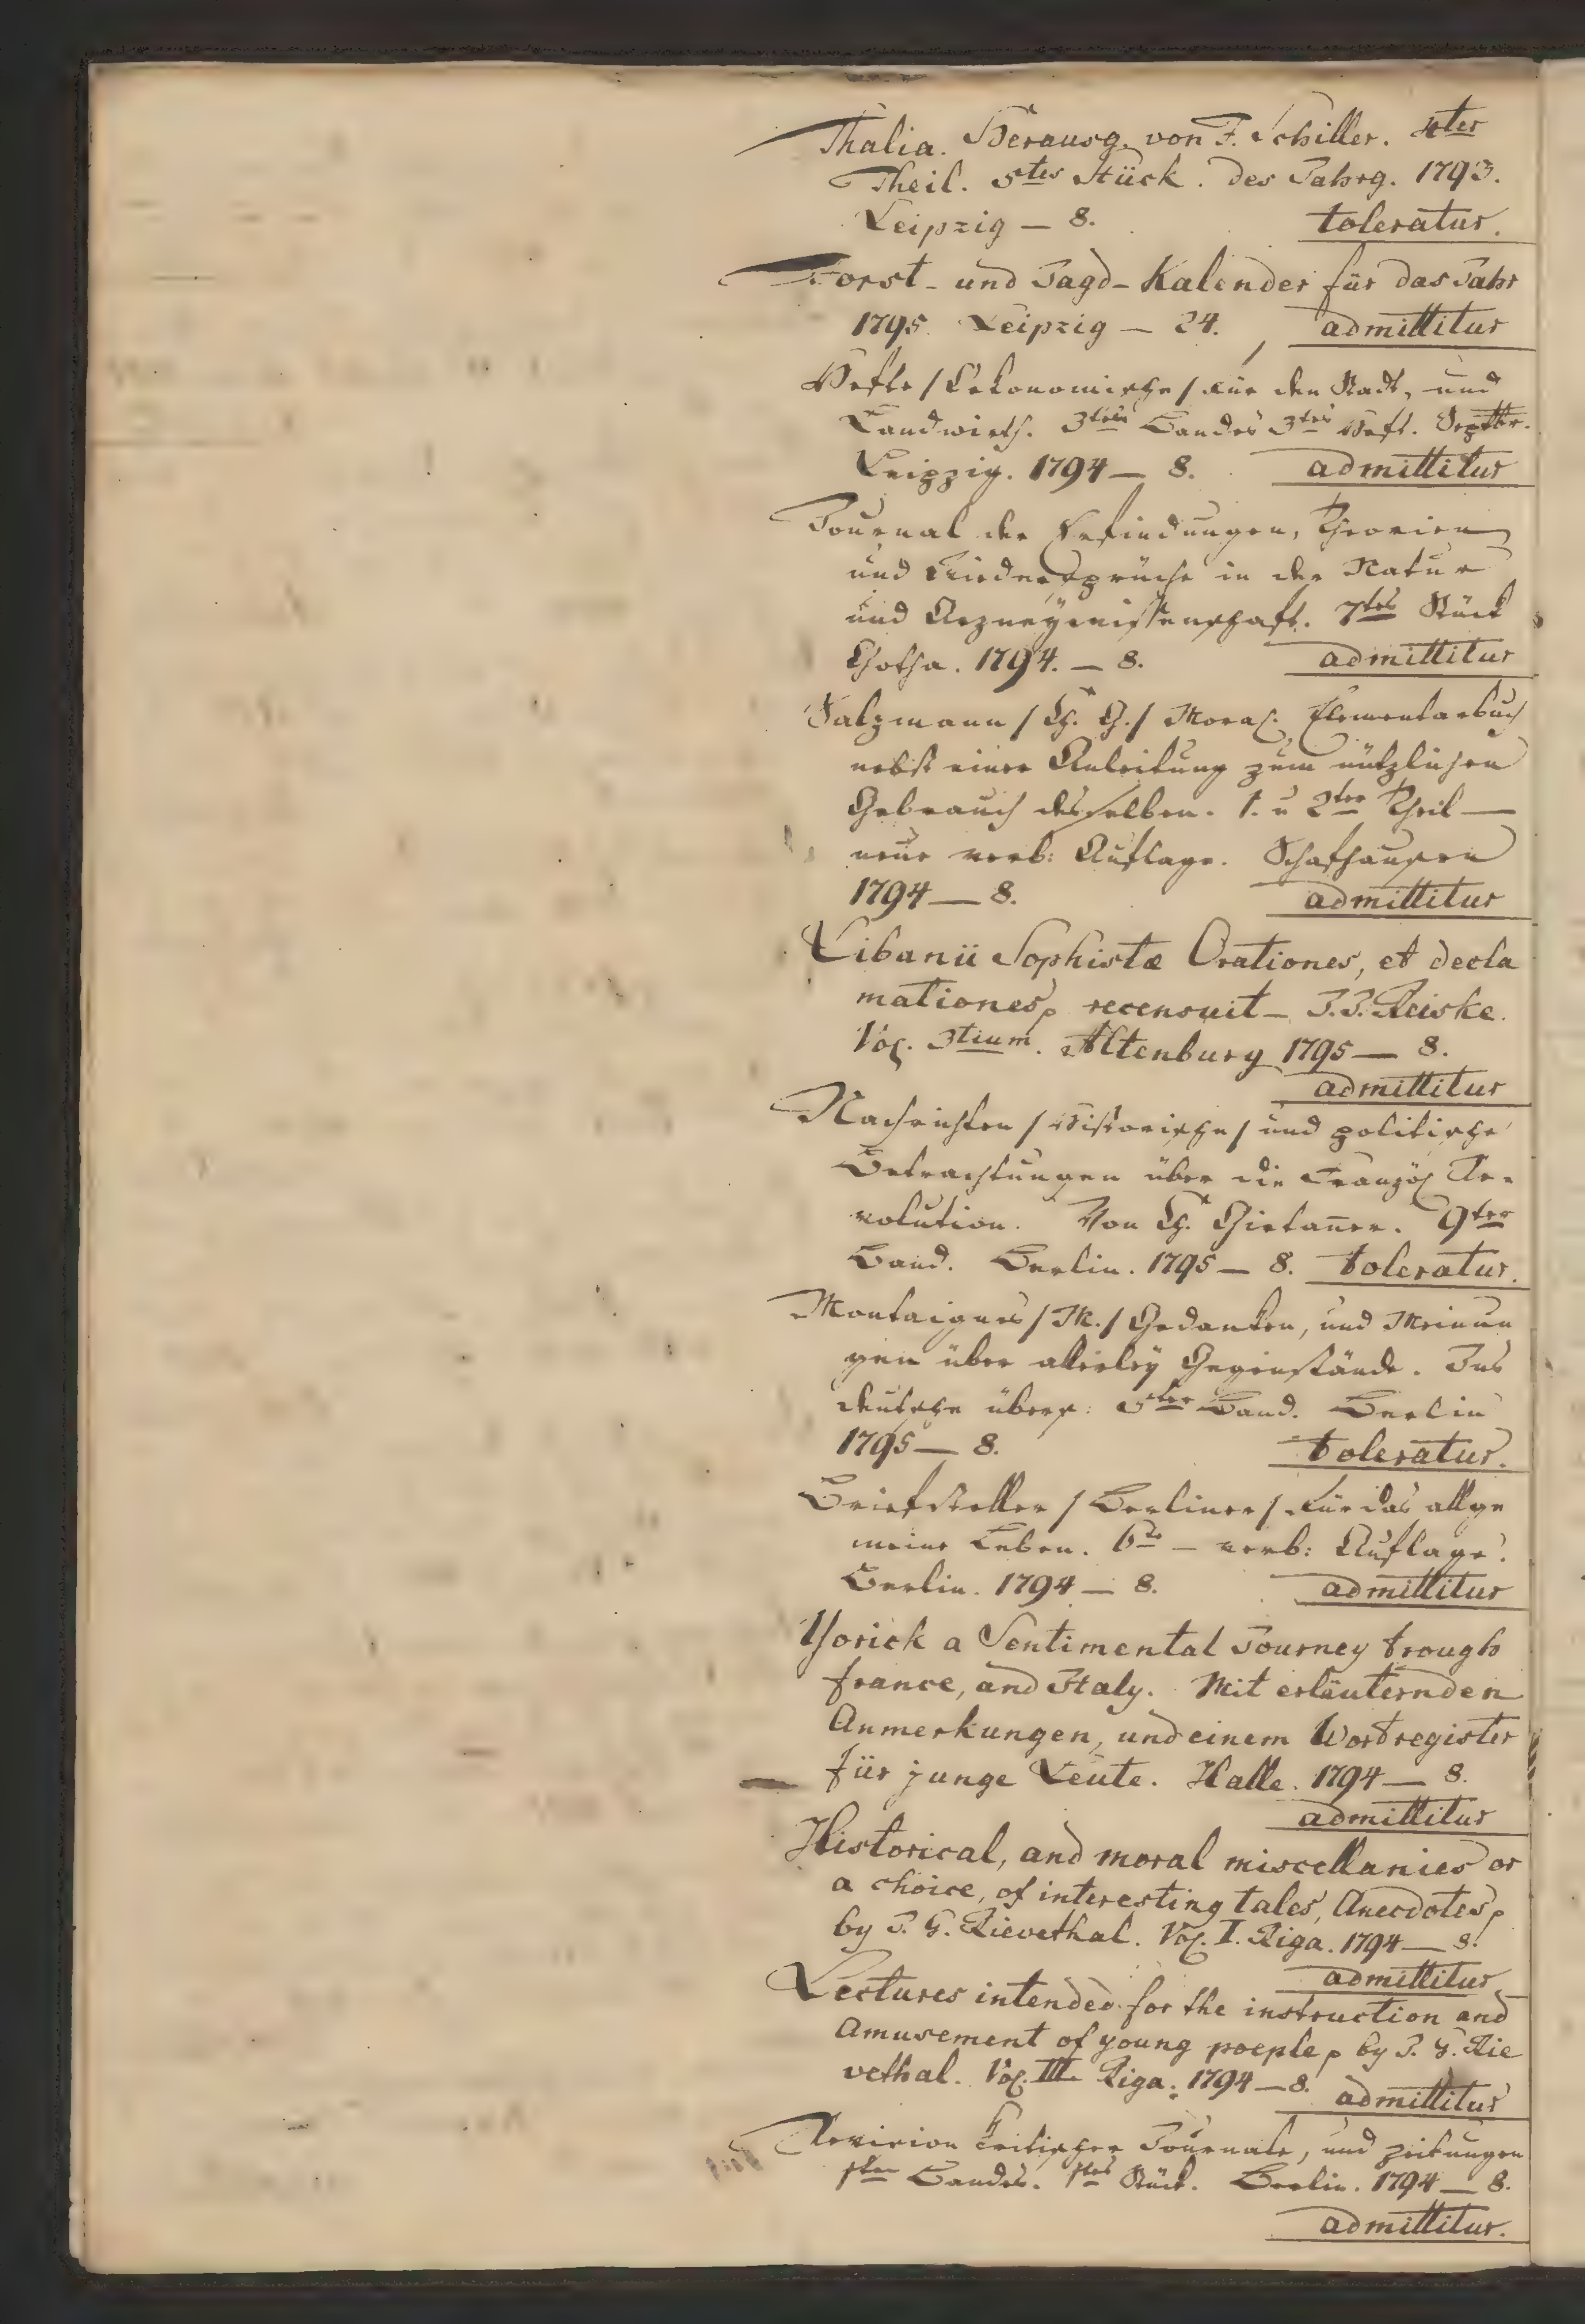 Thalia. Herausg. von F. Schiller. 4ter
Theil. 5tes Stück. des Jahrg. 1793.
Leipzig — 8. toleratur.
Forst- und Jagd-Kalender für das Jahr
1795. Leipzig — 24. admittitur
Hefte / Oekonomische / für den Stadt, und
Landwirth. 3ten Bandes 3tes Heft. Septbr.
Leipzig. 1794 — 8. admittitur
Journal der Erfindungen, Theorien
und Wiedersprüche in der Natur
und Arzneywissenschaft. 7tes Stück
Gotha. 1794. — 8. admittitur
Salzmann / Ch. G. / Moral. Elementarbuch
nebst einer Anleitung zum nützlichen
Gebrauch desselben. 1. u 2ter Theil —
neue verb: Auflage. Schafhausen
1794 — 8. admittitur
Libanii Sophistæ Orationes, et decla
mationes, recensuit — J. J. Reiske.
Vol. 3tium. Altenburg 1795 — 8.
admittitur
Nachrichten / Historische / und politische
Betrachtungen über die Französ. Re-
volution. Von Ch. Girtañer. 9ter
Band. Berlin. 1795 — 8. toleratur.
Montaignes / M. / Gedanken, und Meinun
gen über allerley Gegenstände. Ins
deutsche übers: 5ter Band. Berlin
1795 — 8. toleratur.
Briefsteller / Berliner / für das allge
meine Leben. 6te — verb: Auflage.
Berlin. 1794 — 8. admittitur
Yorick a Sentimental Journey trough
france, and Italy. Mit erläuternden
Anmerkungen, und einem Wortregister
für junge Leute. Halle. 1794 — 8.
admittitur
Historical, and moral miscellanies or
a choice, of interesting tales, Anecdotes,
by J. G. Rievethal. Vol. I. Riga. 1794 — 8.
admittitur
Lectures intended for the instruction and
Amusement of young poeple, by J. G. Rie
vethal. Vol. III. Riga. 1794 — 8. admittitur
Revision kritischer Journale, und zeitungen
1ten Bandes. 1tes Stück. Berlin. 1794 — 8.
admittitur.